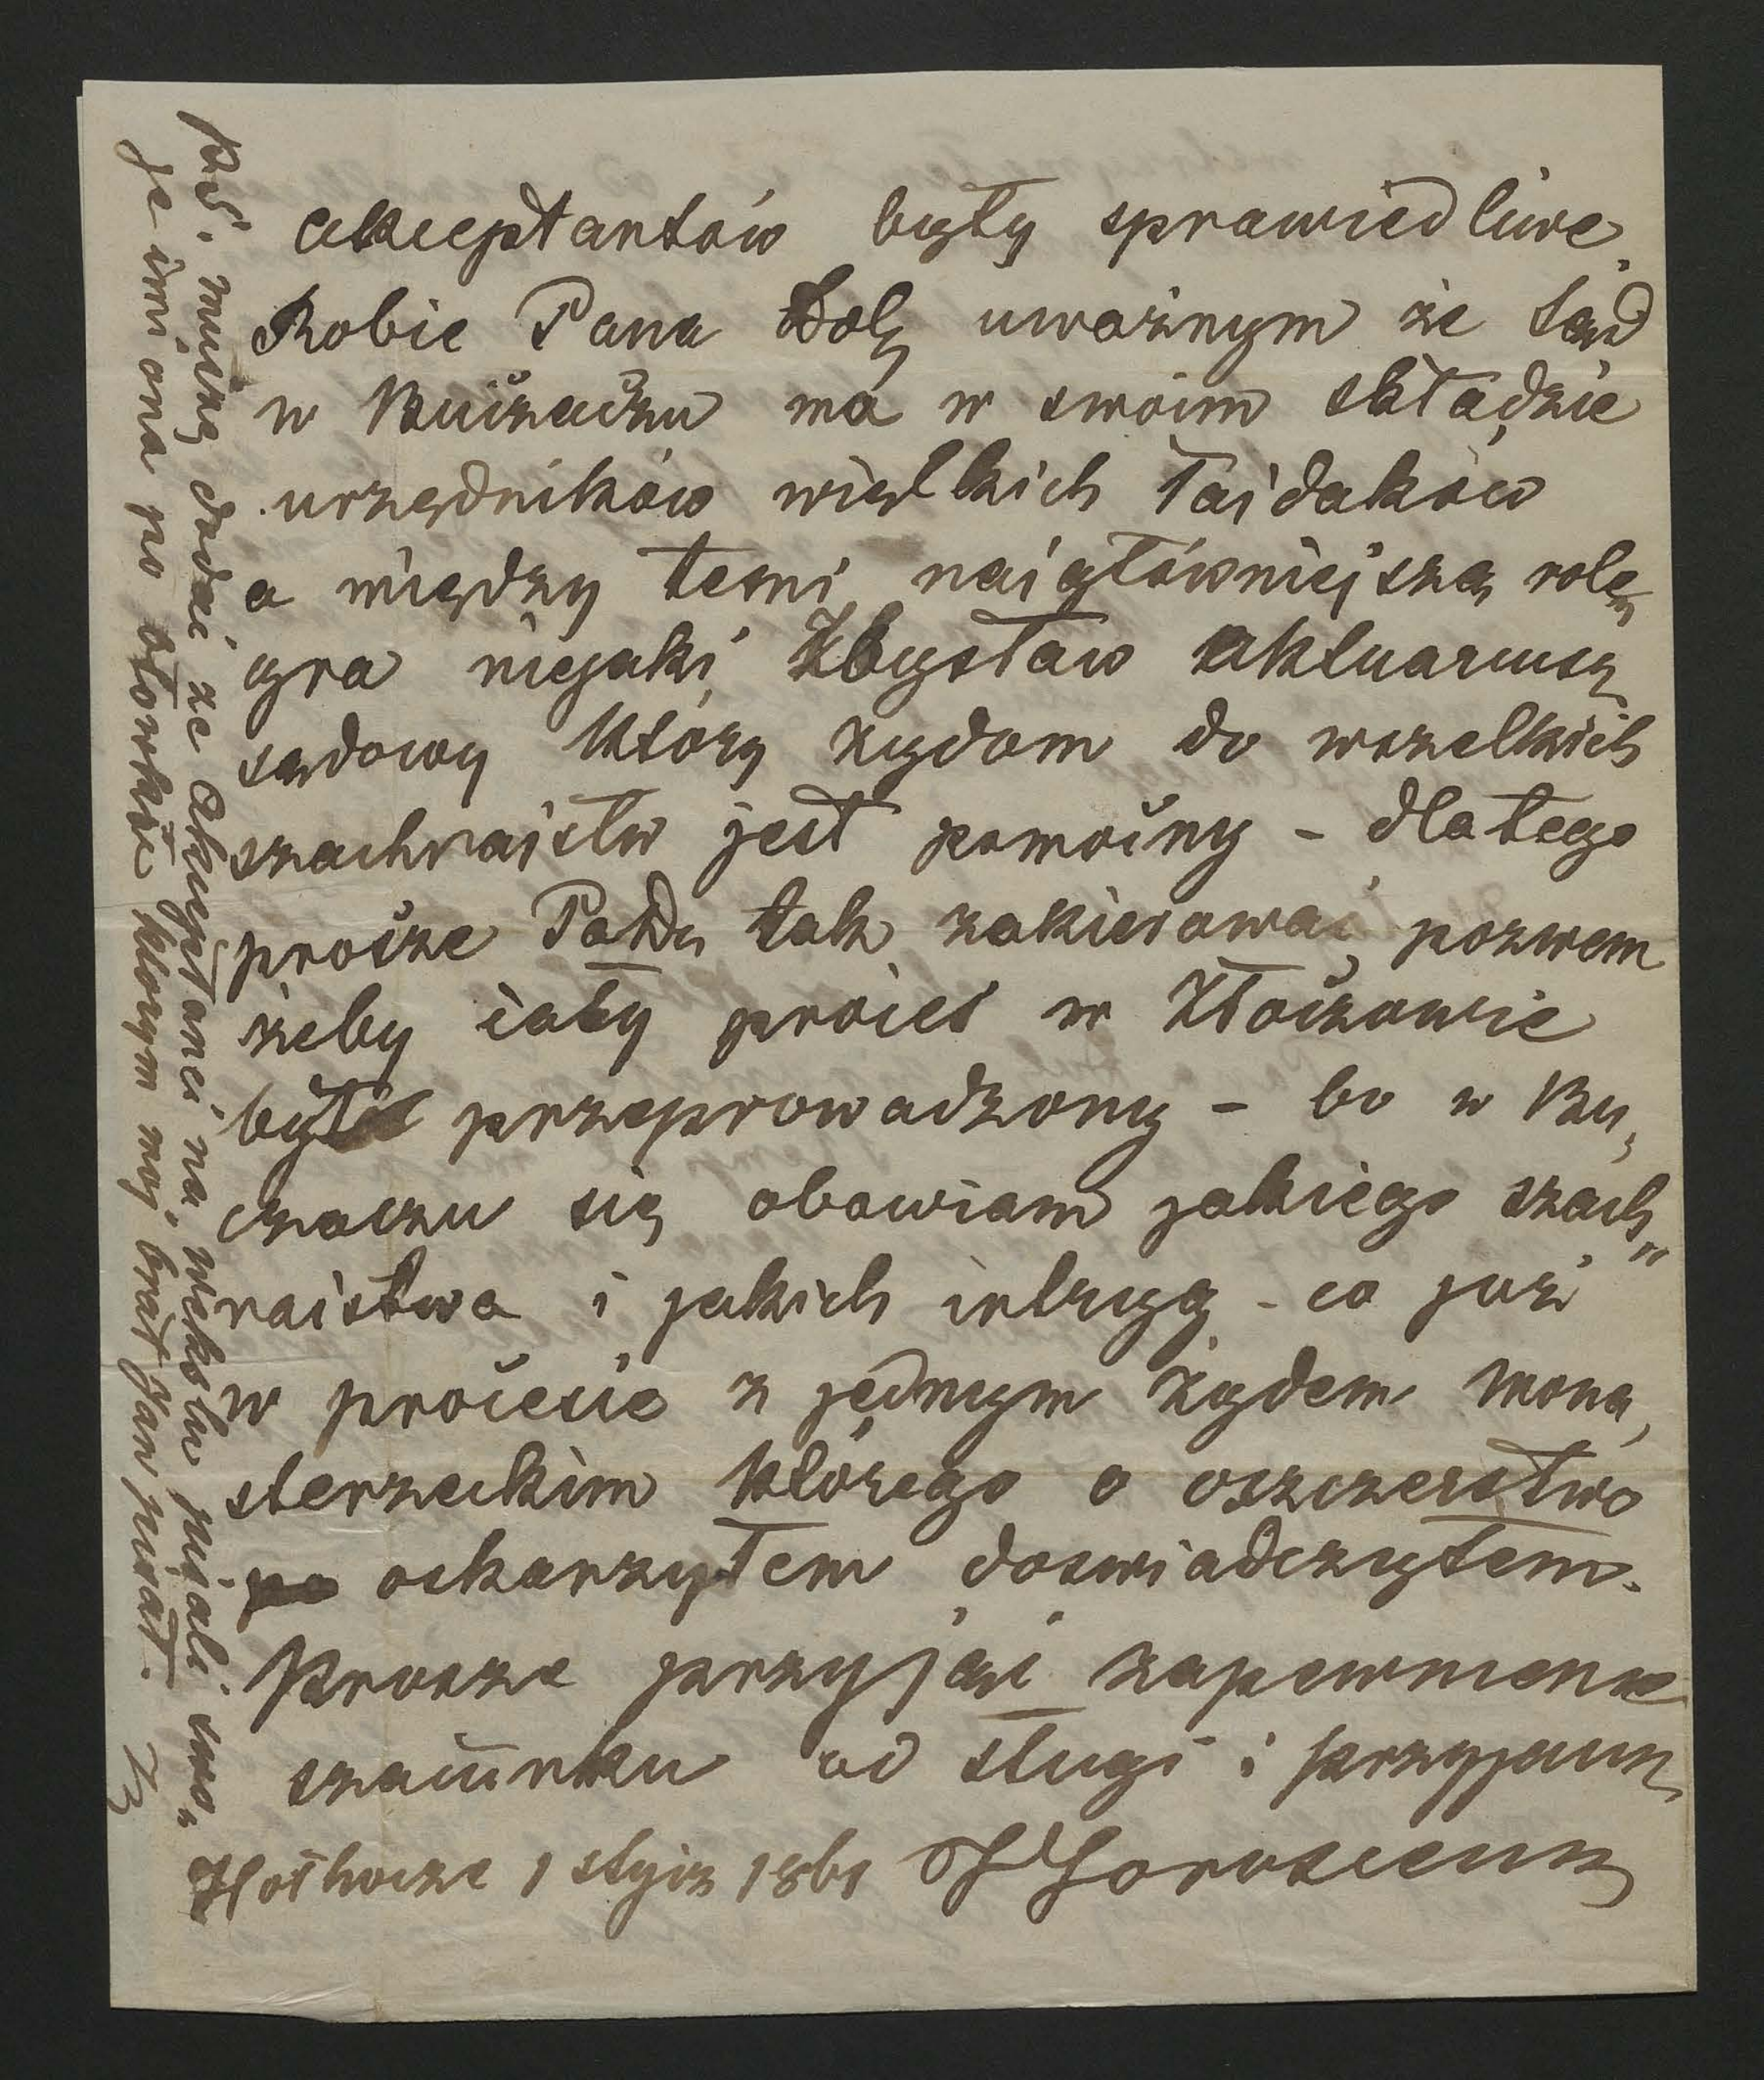 akceptantów były sprawiedliwe.
Robie Pana uważnym że Sąd
w Buczaczu ma w swoim składzie
urzędników wielkich łajdaków
a między temi najgłówniejszą rolę
gra niejaki Zbysław aktuariusz
sądowy który żydom do wszelkich
szachrajstw jest pomocny - dlatego
prosze Pana tak zakierować pozwem
żeby cały proces w Złoczowie
był przeprowadzony - bo w Bu,
czaczu się obawiam jakiego szach„
rajstwa i jakich intryg - co już
w procesie z jednym żydem mona,
sterzeckim którego o oszczerstwo
oskarzyłem doswiadczyłem.
Prosze przyjąć zapewnienie
szacunku od sługi i
1 stycz 1861
PS. muszę dodać ze akceptanci na wekslu pisali swo„
je imiona po ołowkie ktorym moj brat Jan pisał.